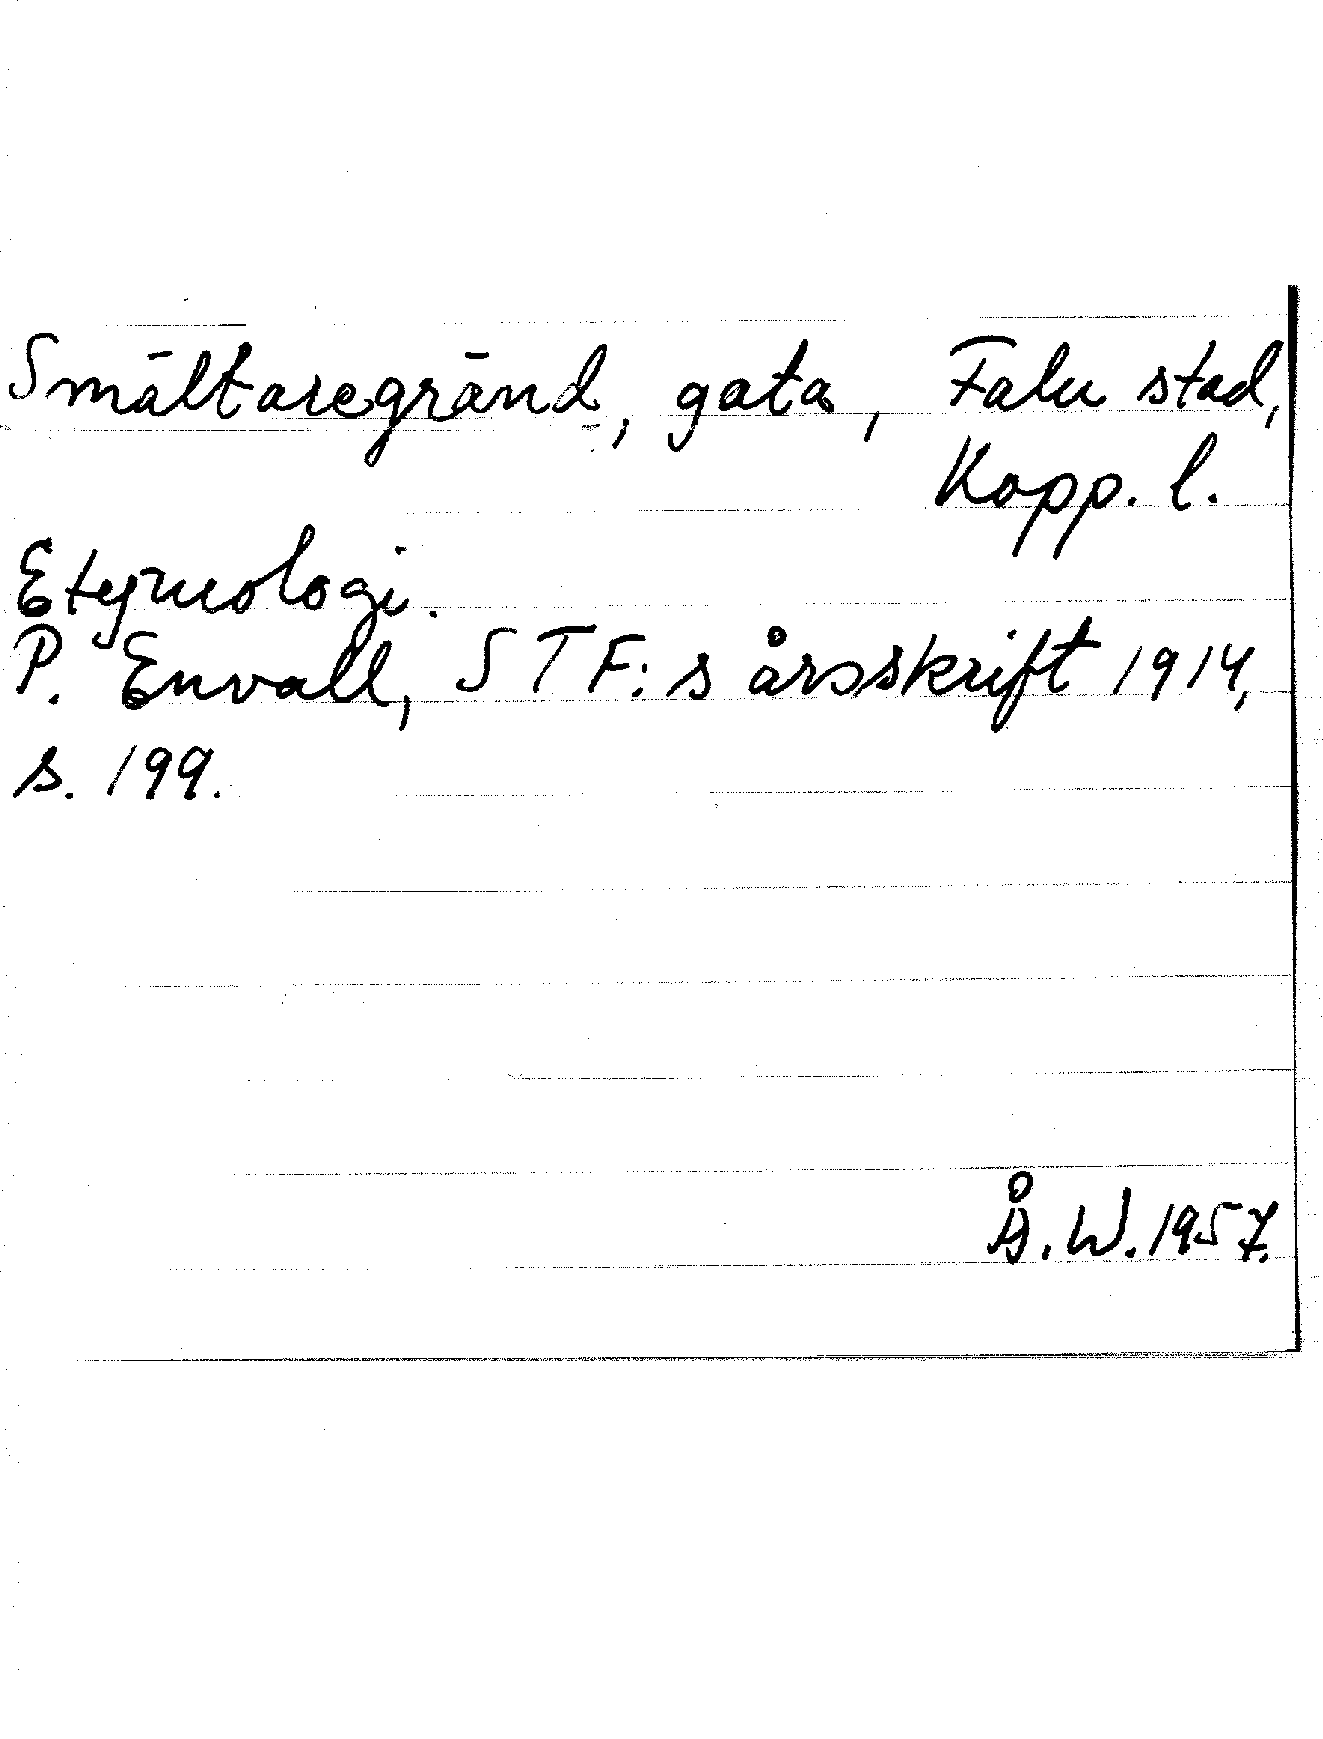 Smältaregränd, gata, Falu stad,
Kopp. l.
Etymologi.
P. Envall, STF:s årsskrift 1914,
s. 199.
Å.W. 1957.